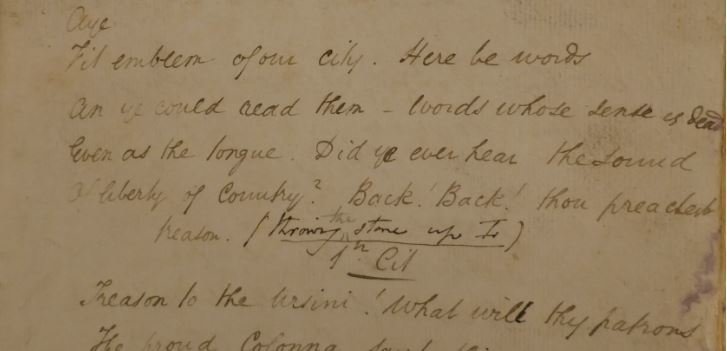 Aye
Fit emblem of our city. Here be words
An ye could read them – Words whose sense is dead
Even as the tongue. Did ye ever hear the sound
Of liberty of Country? Back! Back! thou preachest
treason. (throwing the stone up
1st Cit
Treason to the Ursini! What will thy patrons
The proud Colonna